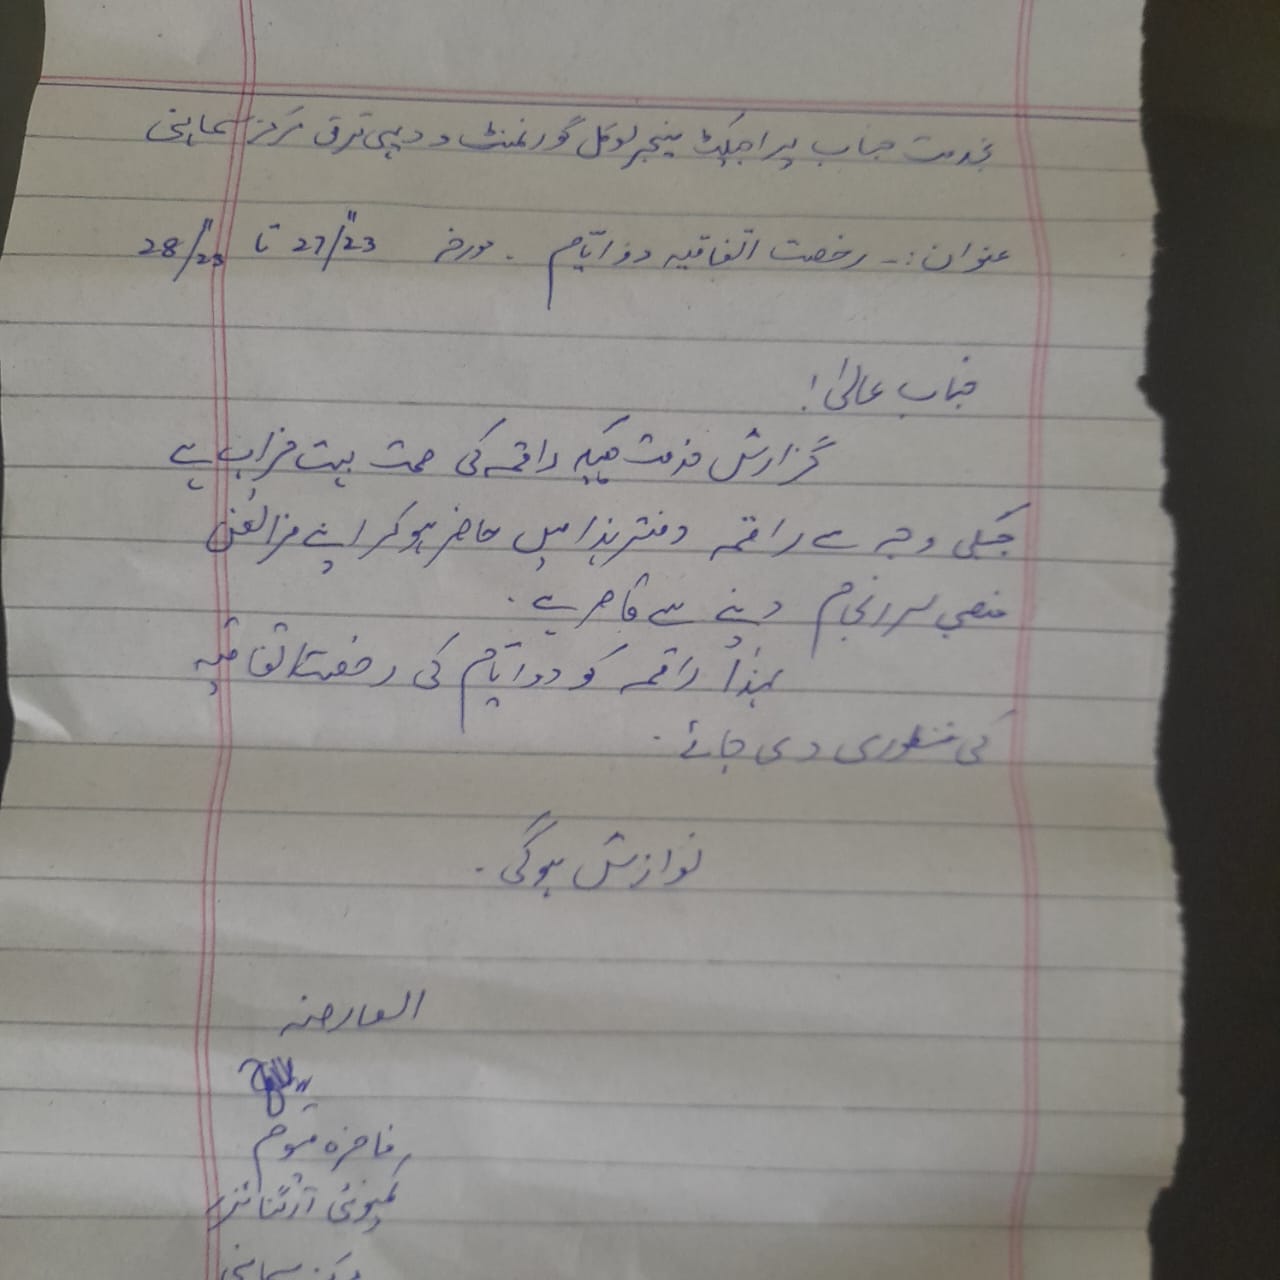 بخدمت جناب پراجیکٹ مینجر لوکل گورنمنٹ و دیہی ترقی مرکز سماہنی
عنوان :۔ رخصت اتفاقیہ دو ایام . مورخہ 27/11/23 تا 28/11/23
جناب عالیٰ !
گزارش خدمت ہیکہ راقمہ کی صحت بہت خراب ہے
جسکی وجہ سے راقمہ دفتر ہذا میں حاضر ہو کر اپنے فرائض
منصبی سرانجام دینے سے قاصر ہے .
لہذا راقمہ کو دو ایام کی رخصت اتفاقیہ
کی منظوری دی جائے .
نوازش ہوگی .
العارضہ
فاخرہ
کمیونٹی آرگنائزر
مرکز سماہنی